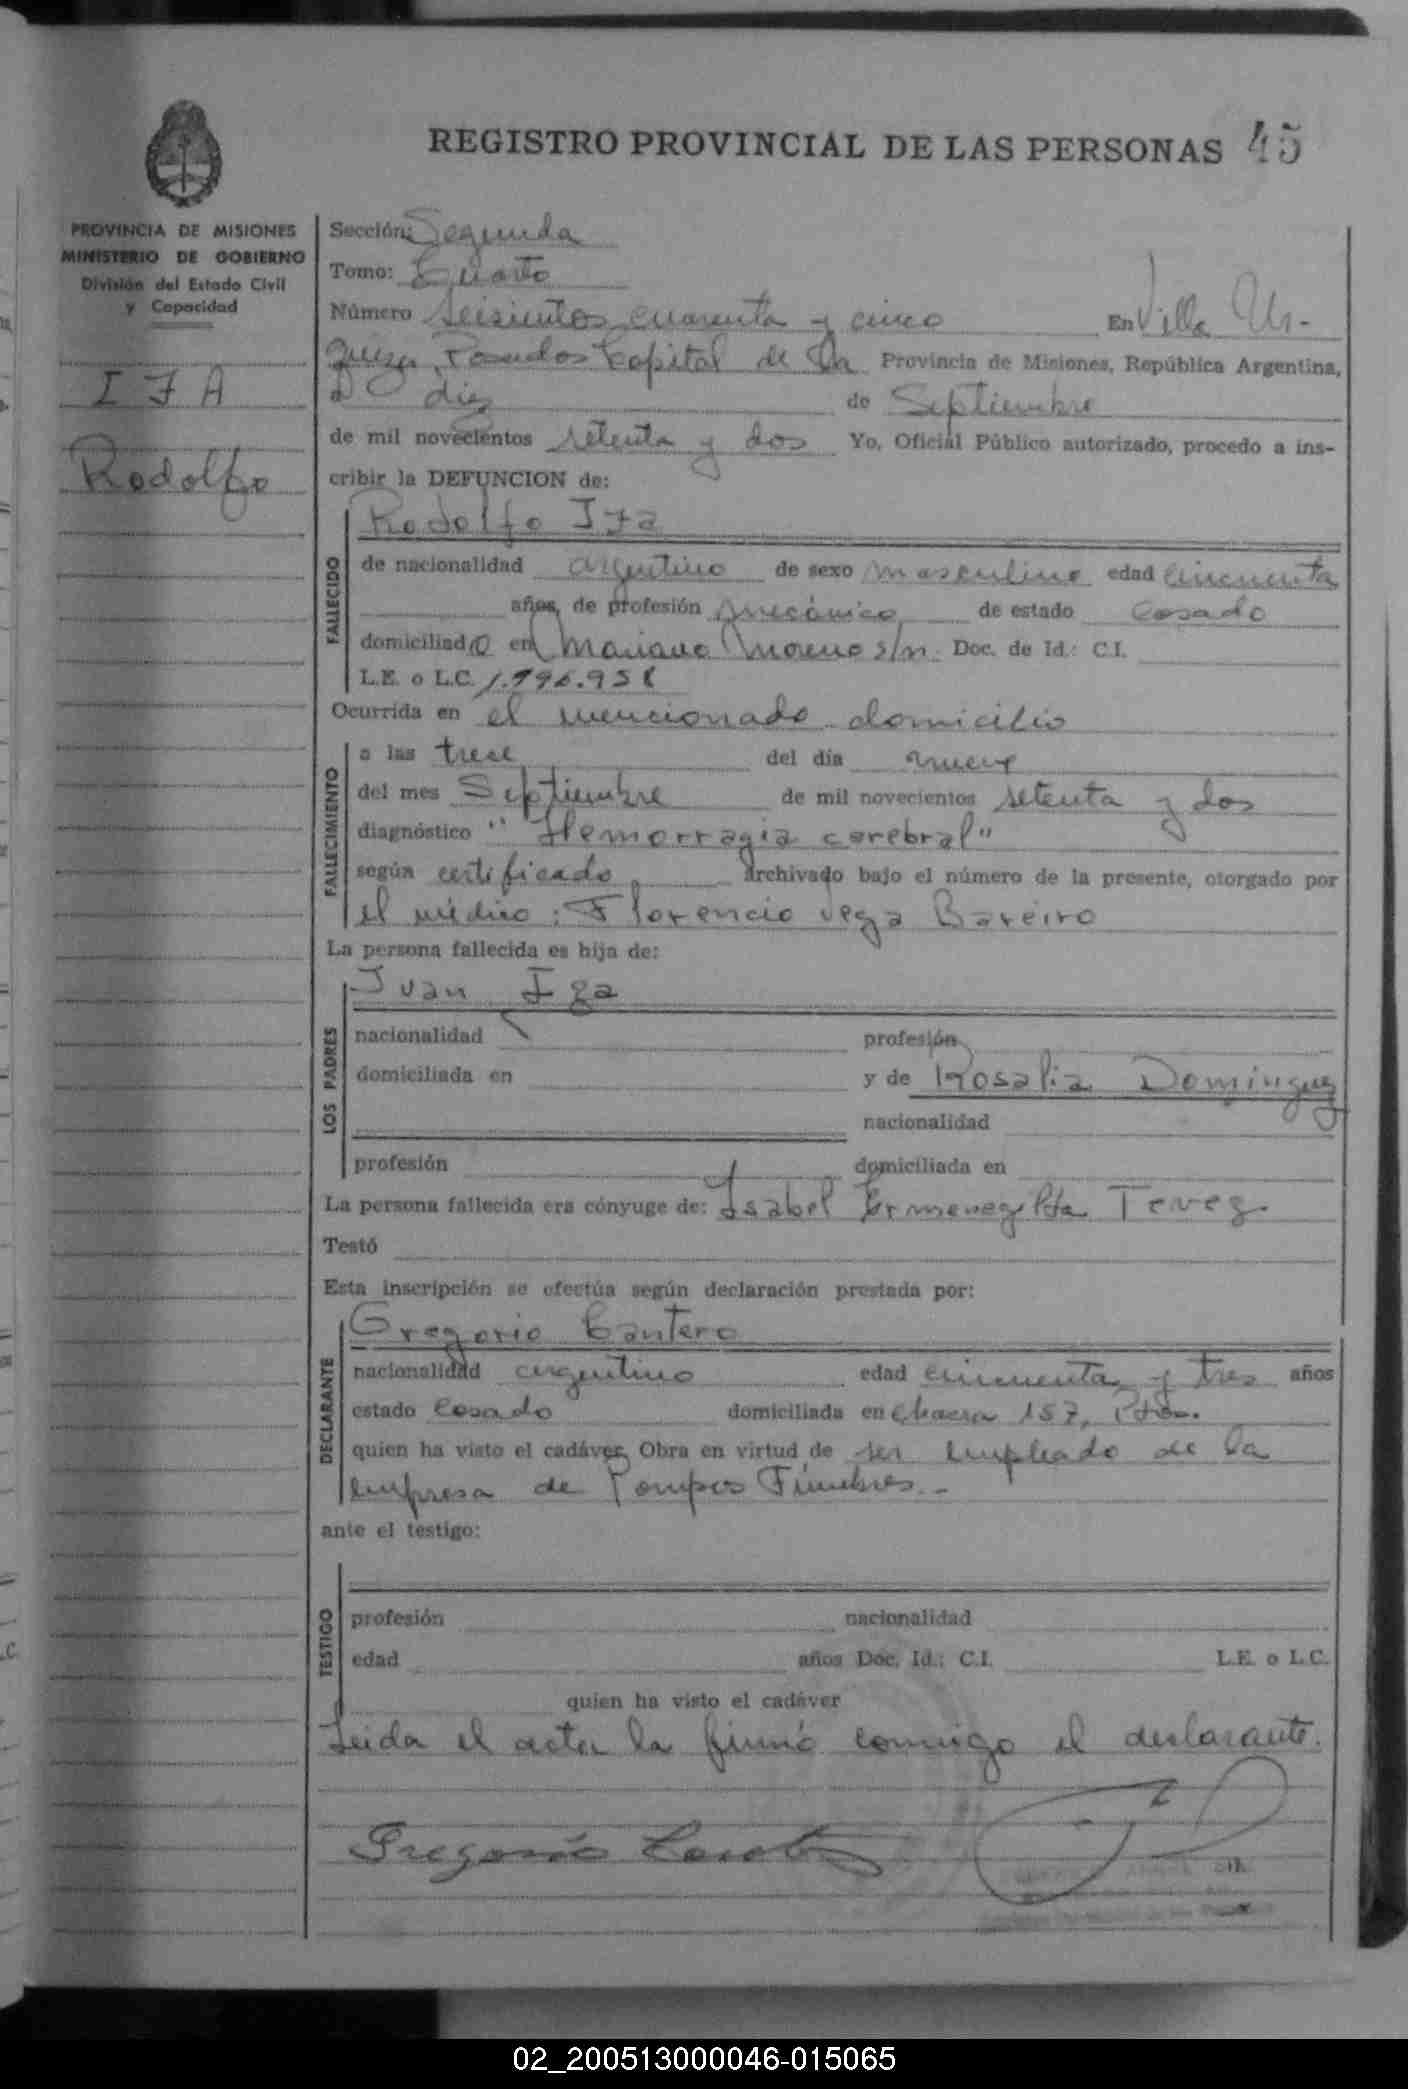 REGISTRO PROVINCIAL DE LAS PERSONAS 45
PROVINCIA DE MISIONES
MINISTERIO DE GOBIERNO
División del Estado Civil
y Capacidad
Rodolfo
Sección: Segunda
Tomo: Cuarto
Número seisientos cuarenta y cinco En Villa Ur-
quiza, Posadas Capital de la Provincia de Misiones, República Argentina,
a diez de Septiembre
de mil novecientos setenta y dos Yo, Oficial Público autorizado, procedo a ins-
cribir la DEFUNCION de:
FALLECIDO
Rodolfo
de nacionalidad argentino de sexo masculino edad cincuenta
años, de profesión mecánico de estado casado
domiciliado en Mariano Moreno s/n. Doc. de Id.: C.I.
L.E. o L.C.
Ocurrida en el mencionado domicilio
FALLECIMIENTO
a las trece del día nueve
del mes Septiembre de mil novecientos setenta y dos
diagnóstico "Hemorragia cerebral"
según certificado archivado bajo el número de la presente, otorgado por
el médico: Florencio Vega Bareiro
La persona fallecida es hija de:
LOS PADRES
Juan
nacionalidad profesión
domiciliada en y de Rosalia Dominguez
nacionalidad
profesión domiciliada en
La persona fallecida era cónyuge de: Isabel Ermenegilda Tevez
Testó
Esta inscripción se efectúa según declaración prestada por:
DECLARANTE
Gregorio Cantero
nacionalidad argentino edad cincuenta y tres años
estado casado domiciliada en chacra 157,
quien ha visto el cadáver Obra en virtud de ser empleado de la
empresa de Pompas Fúnebres.-
ante el testigo:
TESTIGO
profesión nacionalidad
edad años Doc. Id.: C.I. L.E. o L.C.
quien ha visto el cadáver
Leida el acta la firmó conmigo el declarante.
Gregorio
02_200513000046-015065